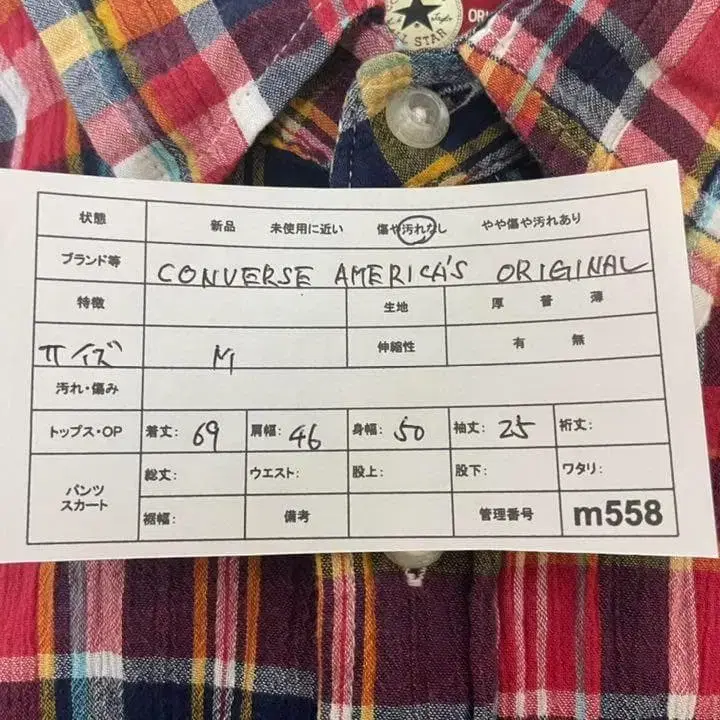 ORI
ALL STAR
状態 新品 未使用に近い 傷や汚れなし やや傷や汚れあり
ブランド等 CONVERSE AMERICA'S ORIGINAL
特徴 生地 厚 普 薄
サイズ M 伸縮性 有 無
汚れ・傷み
トップス・OP 着丈: 69 肩幅: 46 身幅: 50 袖丈: 25 裄丈:
パンツ スカート 総丈: ウエスト: 股上: 股下: ワタリ:
裾幅: 備考 管理番号 m558